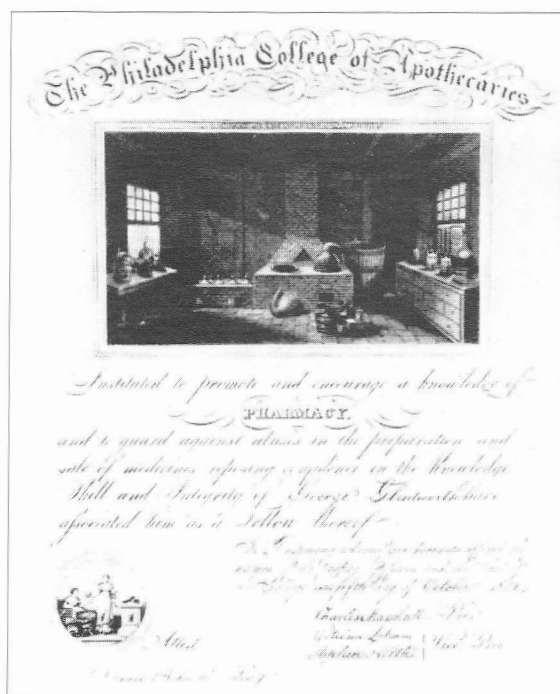 The Philadelphia College of Apothecaries
Instituted to promote and encourage a knowledge of
PHARMACY,
and to guard against abuses in the preparation and
sale of medicines reposing confidence in the Knowledge
Skill and Integrity of George Glentworth have
associated him as a Fellow thereof
In Testimony whereof we hereunto affixed
day of October
Charles Marshall Pres
William Lehman
Stephen North Vice Pres
Attest